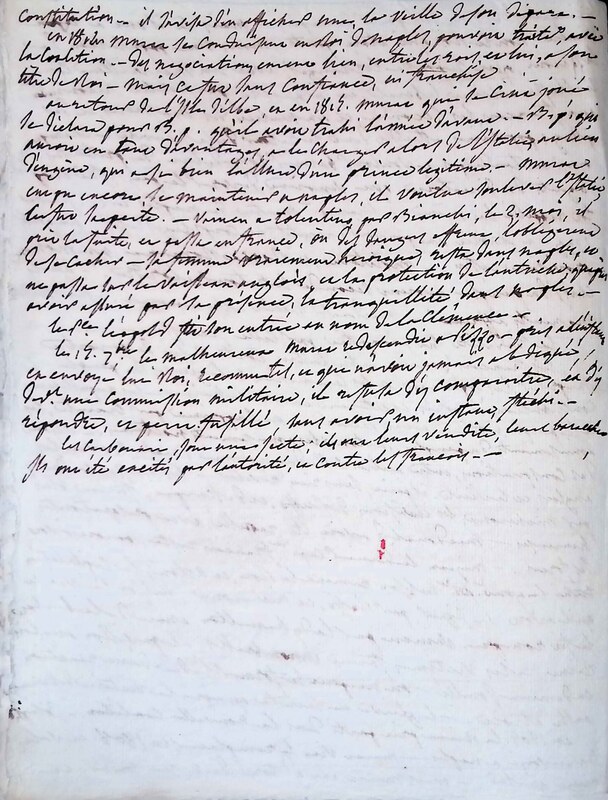 Constitution — il s'avisa d'en afficher une, la ville de son départ. —
en 18 murat se conduisant en roi de naples, pouvait traiter avec
la Coalition. — Des négociations eurent lieu, entre les rois, et lui, à son
titre de Roi — mais ce fut sans confiance, ni franchise
au retour de l'Isle d'Elbe, et en 1815. murat qui se crut joué
se déclara pour B. p. qu'il avait trahi l'année d'avant. — B. p. qui
aurait eu tant d'avantages, à le charger alors de l'Italie au lieu
d'eugène, qui a si bien l'allure d'un prince légitime. — murat
crut encore se maintenir à naples, il voulut soulever l'Italie,
ce fut sa perte. — vaincu a tolentino par Bianchi, le 2. mai, il
prit la fuite, et passa en france, où des dangers affreux, l'obligèrent
de se cacher — sa femme vraiment héroïque, resta dans naples, et
ne passa sur le vaisseau anglois, et la protection de l'autriche qu'après
avoir assuré par sa présence, la tranquillité dans naples. —
le pce léopold fit son entrée au nom de la clémence. —
le 15. 7bre le malheureux murat redescendit a Pizzo — pris à l'instant
en envoyé lui Roi, reconnu tel, et qui n'avoit jamais abdiqué,
dvt une commission militaire, il refusa d'y comparoitre, et d'y
répondre, et périt fusillé, sans avoir un instant fléchi. —
les carbonari, sont une secte; ils ont leurs vendite, leurs baracche
ils ont été excités par l'autorité, et contre les françois. —